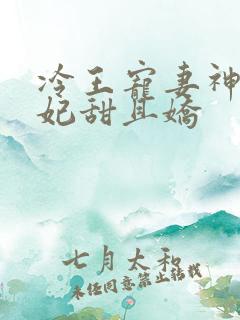 冷王寵妻神
妃甜且嬌
七月太和
未经同意禁止转载